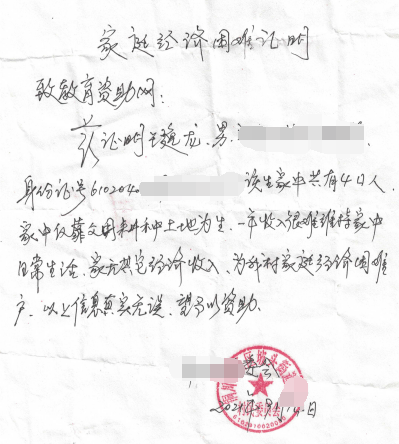 家庭经济困难证明
致教育资助网：
兹证明王琁龙、男.
身份证号6102040 该生家中共有4口人
家中仅靠父母耕种土地为生、一年收入很难维持家中
日常生活、家无其它经济收入、为我村家庭经济困难
户、以上信息真实无误、望予以资助.
村民委员会
2021年 月14日